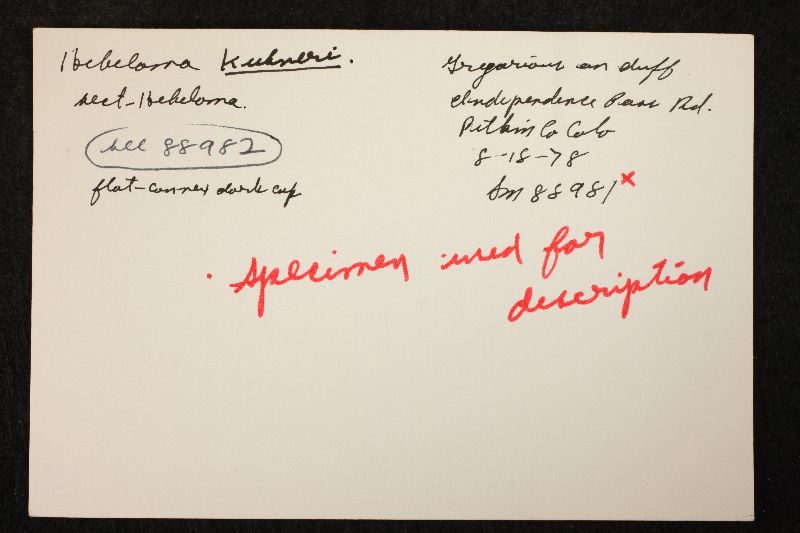 Hebeloma Kuhneri.
sect-Hebeloma.
see 88982
flat-convex dark cap
Gregarious on duff
Independence Pass Rd.
Pitkin Co Colo
8-18-78
Sm 88981 x
specimen used for
description